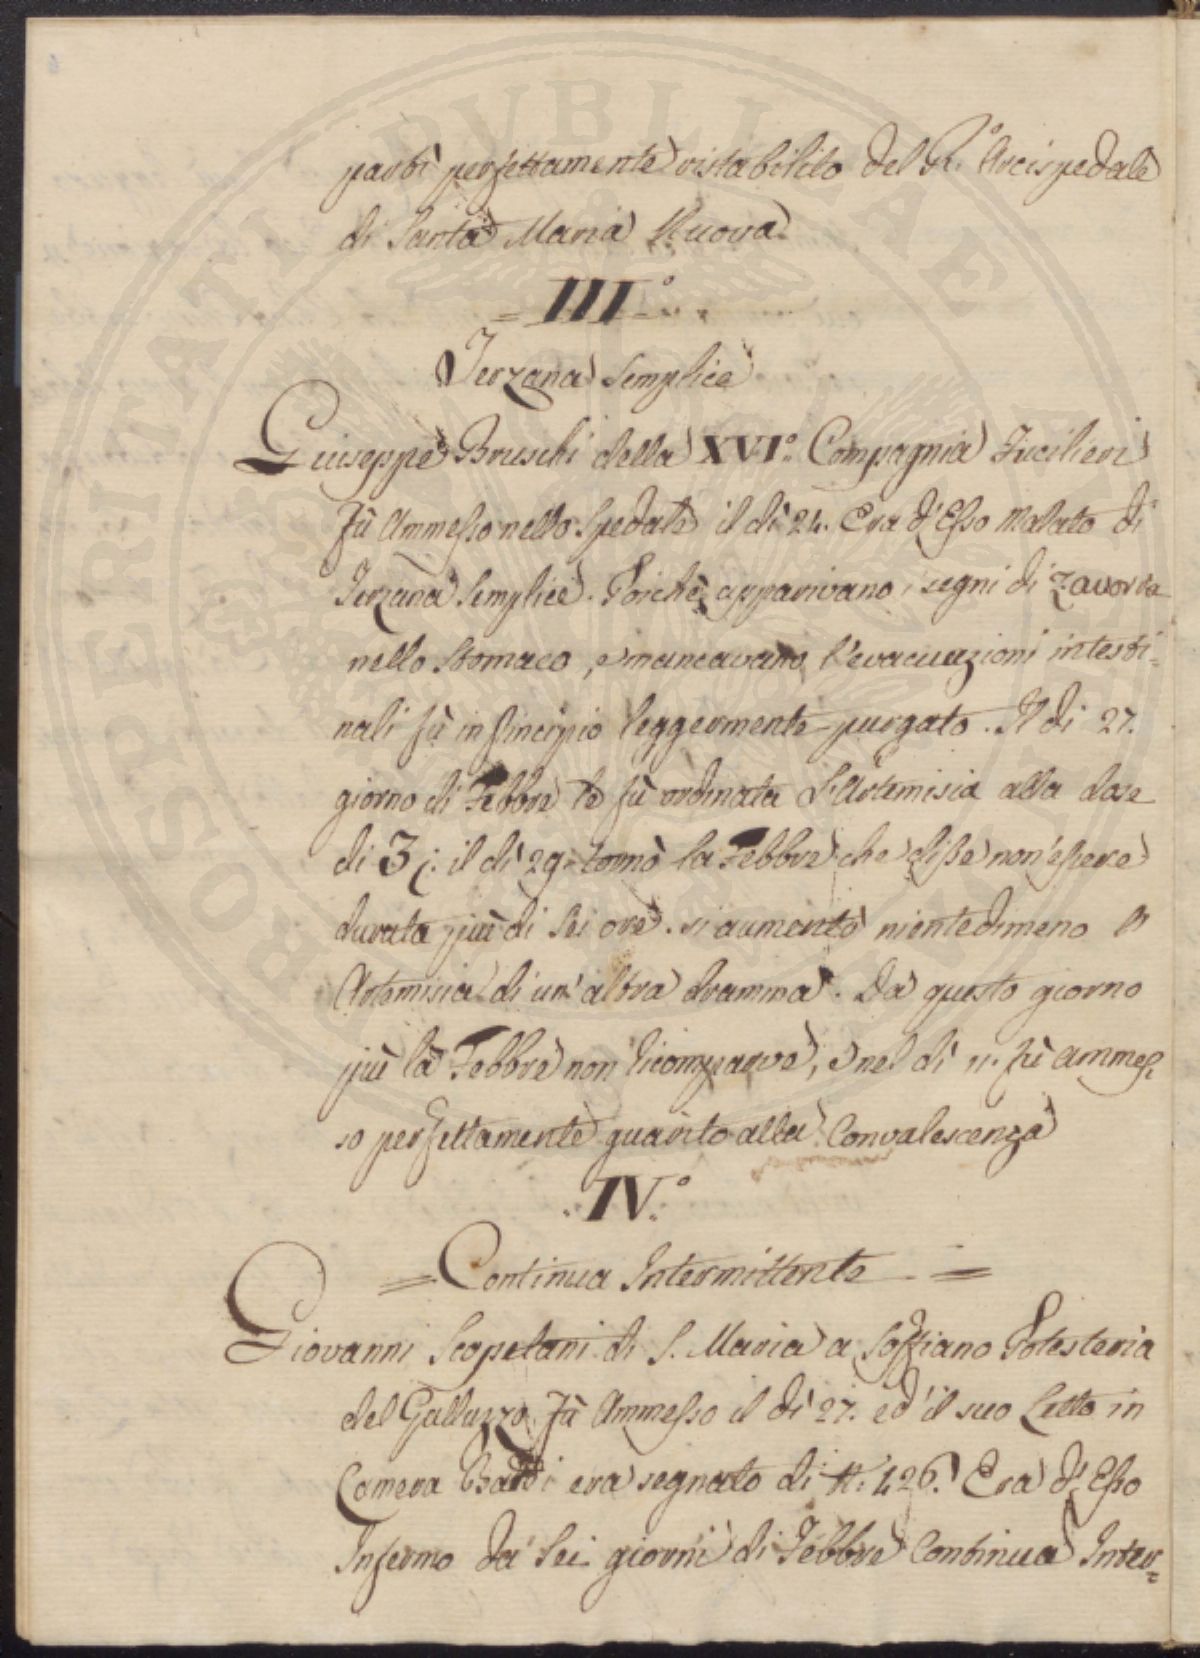 partì perfettamente ristabilito del R.° Arcispedale
di Santa Maria Nuova
= III.° =
Terzana Semplice
Giuseppe Bruschi della XVI.° Compagnia Fucilieri
Fù Ammesso nello Spedale il dì 24. Era d'Esso Malato di
Terzana Semplice. Poichè apparivano i segni di Zavorra
nello Stomaco, e mancavano l'evacuazioni intesti=
nali fù in principio leggermente purgato. Il di 27.
giorno di Febbre le fù ordinata l'Artemisia alla dose
di ʒj. il dì 29. tornò la Febbre che disse non'essere
durata più di Sei ore. si aumentò nientedimeno l'
Artemisia di un'altra dramma. Da questo giorno
più la Febbre non ricomparve, e nel dì 11. fù ammes=
so perfettamente guarito alla Convalescenza
.IV.°
= Continua Intermittente =
Giovanni Scopetani di S. Maria a Soffiano Potesteria
del Galluzzo Fù Ammesso il dì 27. ed'il suo Letto in
Camera Bardi era segnato di N. 426. Era d'Esso
Infermo da Sei giorni di Febbre Continua Inter=
PROSPERITATI PVBLICAE